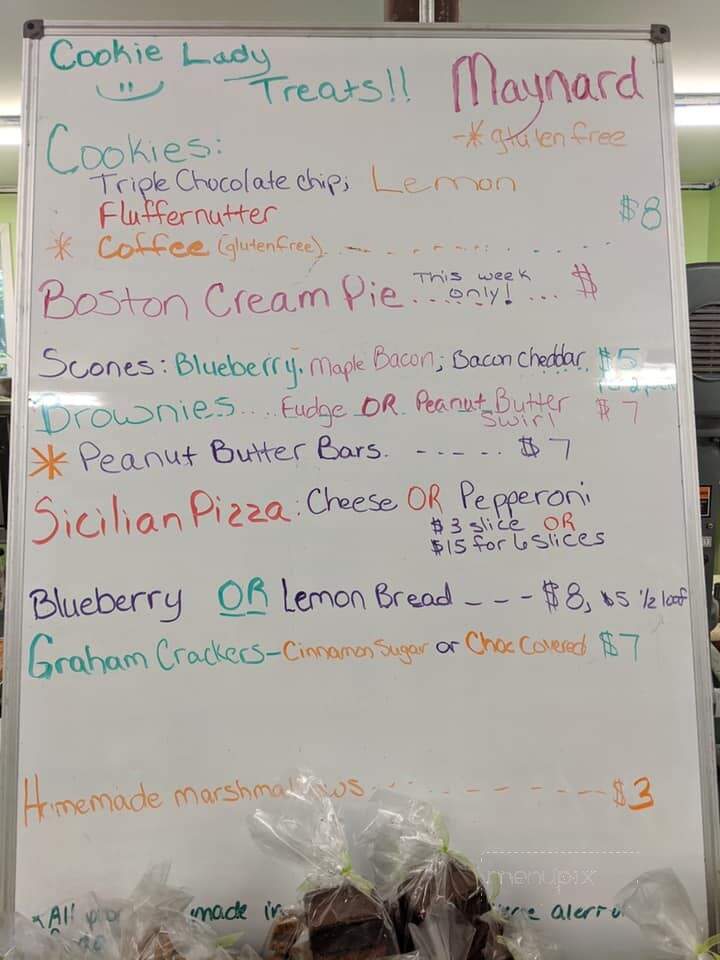 Cookie Lady
Treats!!
Maynard
-* gluten free
Cookies:
Triple Chocolate chip; Lemon
Fluffernutter
$8
* Coffee (gluten free)
Boston Cream Pie... This week only! ... $
Scones: Blueberry. Maple Bacon; Bacon Cheddar $5
Brownies.... Fudge OR Peanut Butter Swirl $7
* Peanut Butter Bars. - - - - .. $7
Sicilian Pizza: Cheese OR Pepperoni
$3 slice OR
$15 for 6 slices
Blueberry OR Lemon Bread _ - - $8, $5 1/2 loaf
Graham Crackers - Cinnamon Sugar or Choc Covered $7
Homemade marshmallows - - - - - - - $3
menupix
* All made in